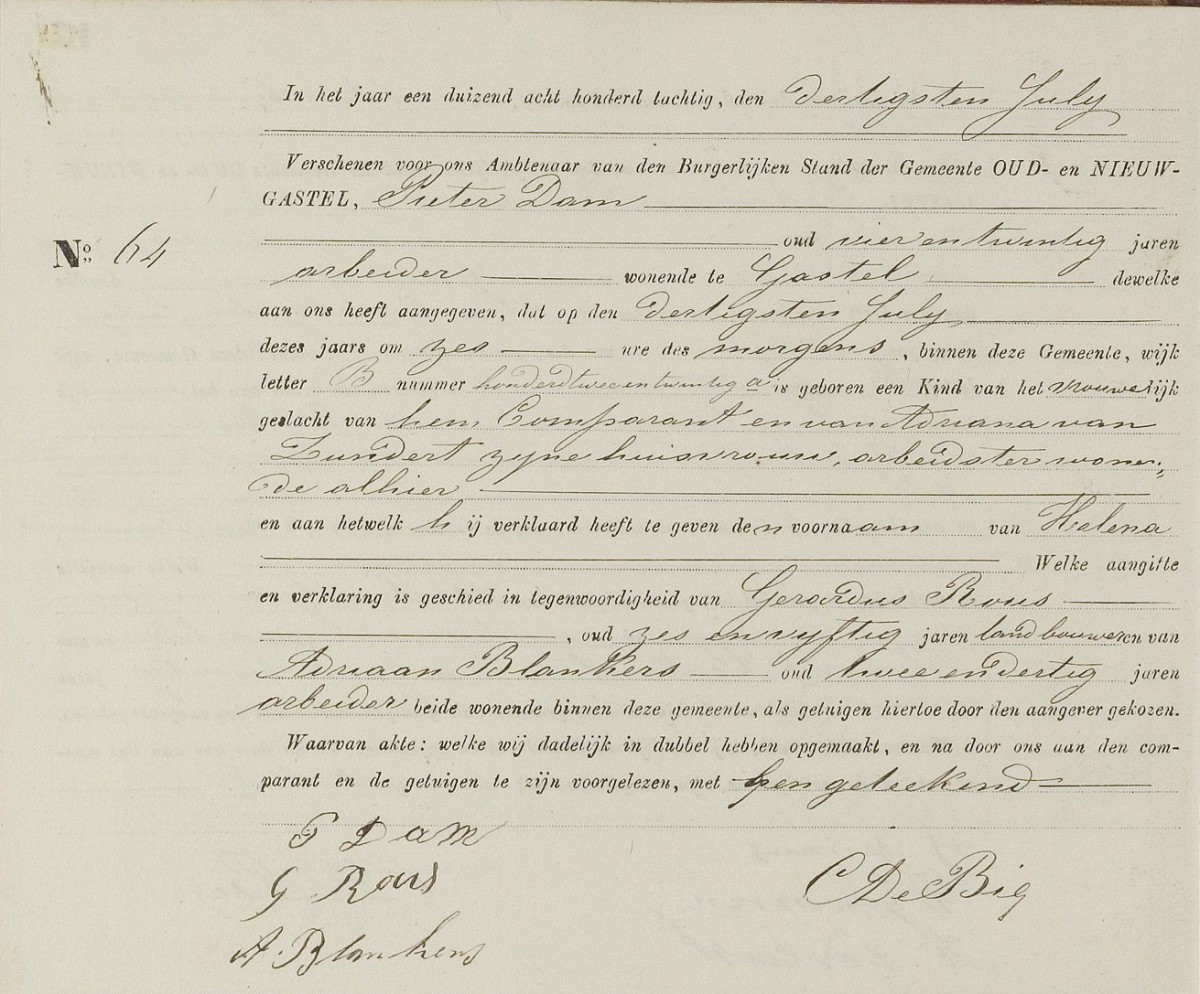 In het jaar een duizend acht honderd tachtig, den dertigsten July
Verschenen voor ons Ambtenaar van den Burgerlijken Stand der Gemeente OUD- en NIEUW-
GASTEL, Pieter Dam
No. 64
oud vier en twintig jaren
arbeider wonende te Gastel dewelke
aan ons heeft aangegeven, dat op den dertigsten July
dezes jaars om zes ure des morgens, binnen deze Gemeente, wijk
letter B nummer honderdtwee en twintig a is geboren een Kind van het vrouwelijk
geslacht van hem Comparant en van Adriana van
Zundert zyne huisvrouw, arbeidster wonen„
de alhier
en aan hetwelk hij verklaard heeft te geven den voornaam van Helena
Welke aangifte
en verklaring is geschied in tegenwoordigheid van Gerardus Rous
, oud zes en vyftig jaren landbouwer en van
Adriaan Blankers oud twee en dertig jaren
arbeider beide wonende binnen deze gemeente, als getuigen hiertoe door den aangever gekozen.
Waarvan akte: welke wij dadelijk in dubbel hebben opgemaakt, en na door ons aan den com-
parant en de getuigen te zijn voorgelezen, met hen geteekend
P Dam
G Rous
C De Big
A. Blankers